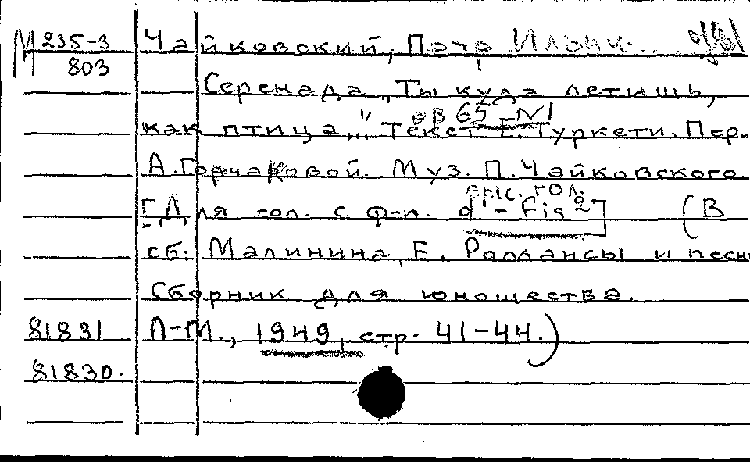 М 235-3 Чайковский, Петр Ильич.
803
Серенада „Ты куда летишь,
ор 65 №1
как птица," Текст Е. Туркети. Пер.
А. Горчаковой. Муз. П. Чайковского
выс. гол.
[Для гол. с ф-п. d' - fis 2] (В
сб: Малинина, Е. Романсы и песни
Сборник для юношества.
81831 Л-М., 1949, стр. 41-44.)
81830.